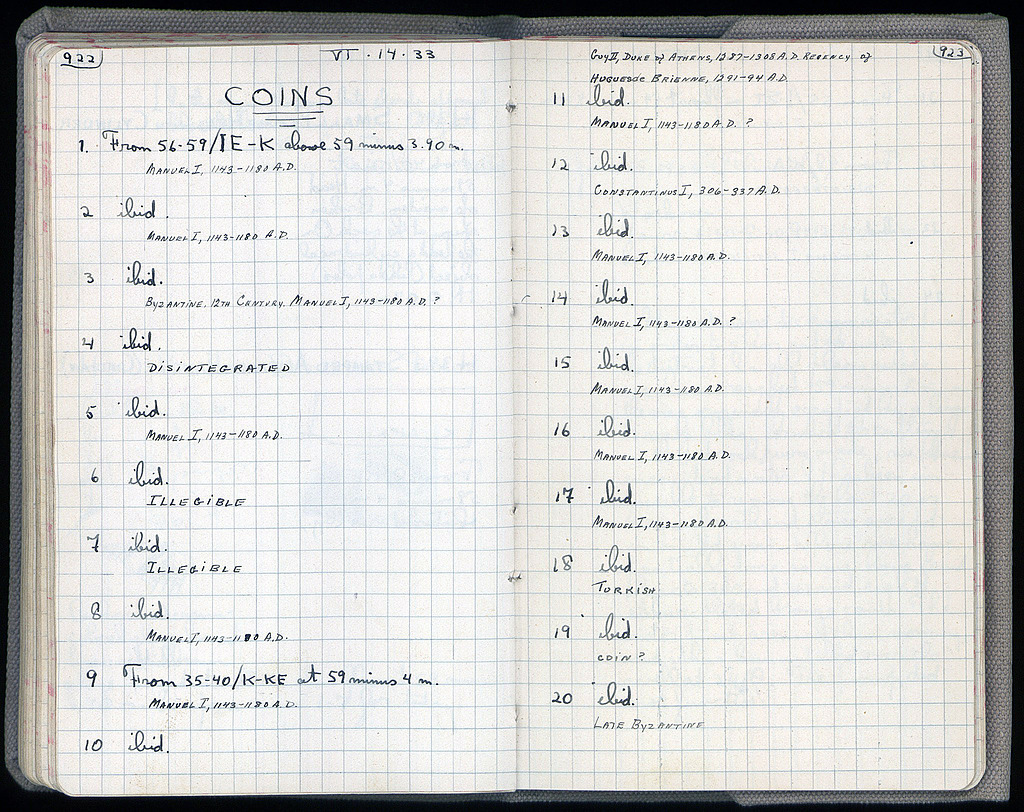 922
VI · 14 · 33
COINS
1. From 56-59/IE-K above 59 minus 3.90 m.
MANUEL I, 1143-1180 A.D.
2 ibid.
MANUEL I, 1143-1180 A.D.
3 ibid.
BYZANTINE. 12TH CENTURY. MANUEL I, 1143-1180 A.D. ?
4 ibid.
DISINTEGRATED
5 ibid.
MANUEL I, 1143-1180 A.D.
6 ibid.
ILLEGIBLE
7 ibid.
ILLEGIBLE
8 ibid.
MANUEL I, 1143-1180 A.D.
9 From 35-40/K-KE at 59 minus 4 m.
MANUEL I, 1143-1180 A.D.
10 ibid.
923
GUY II, DUKE of ATHENS, 1287-1308 A.D. REGENCY of
HUGUES de BRIENNE, 1291-94 A.D.
11 ibid.
MANUEL I, 1143-1180 A.D. ?
12 ibid.
CONSTANTINUS I, 306-337 A.D.
13 ibid.
MANUEL I, 1143-1180 A.D.
14 ibid.
MANUEL I, 1143-1180 A.D. ?
15 ibid.
MANUEL I, 1143-1180 A.D.
16 ibid.
MANUEL I, 1143-1180 A.D.
17 ibid.
MANUEL I, 1143-1180 A.D.
18 ibid.
TURKISH
19 ibid.
COIN ?
20 ibid.
LATE BYZANTINE